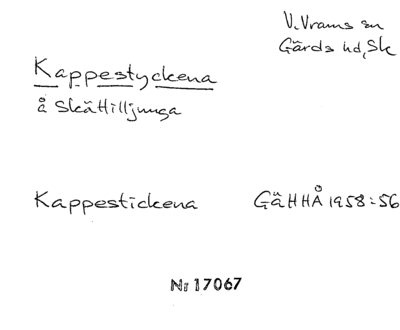 V. Vrams sn
Gärds hd, Sk
Kappestyckena
å Skättilljunga
Kappestickena GäHHÅ 1958:56
N: 17067